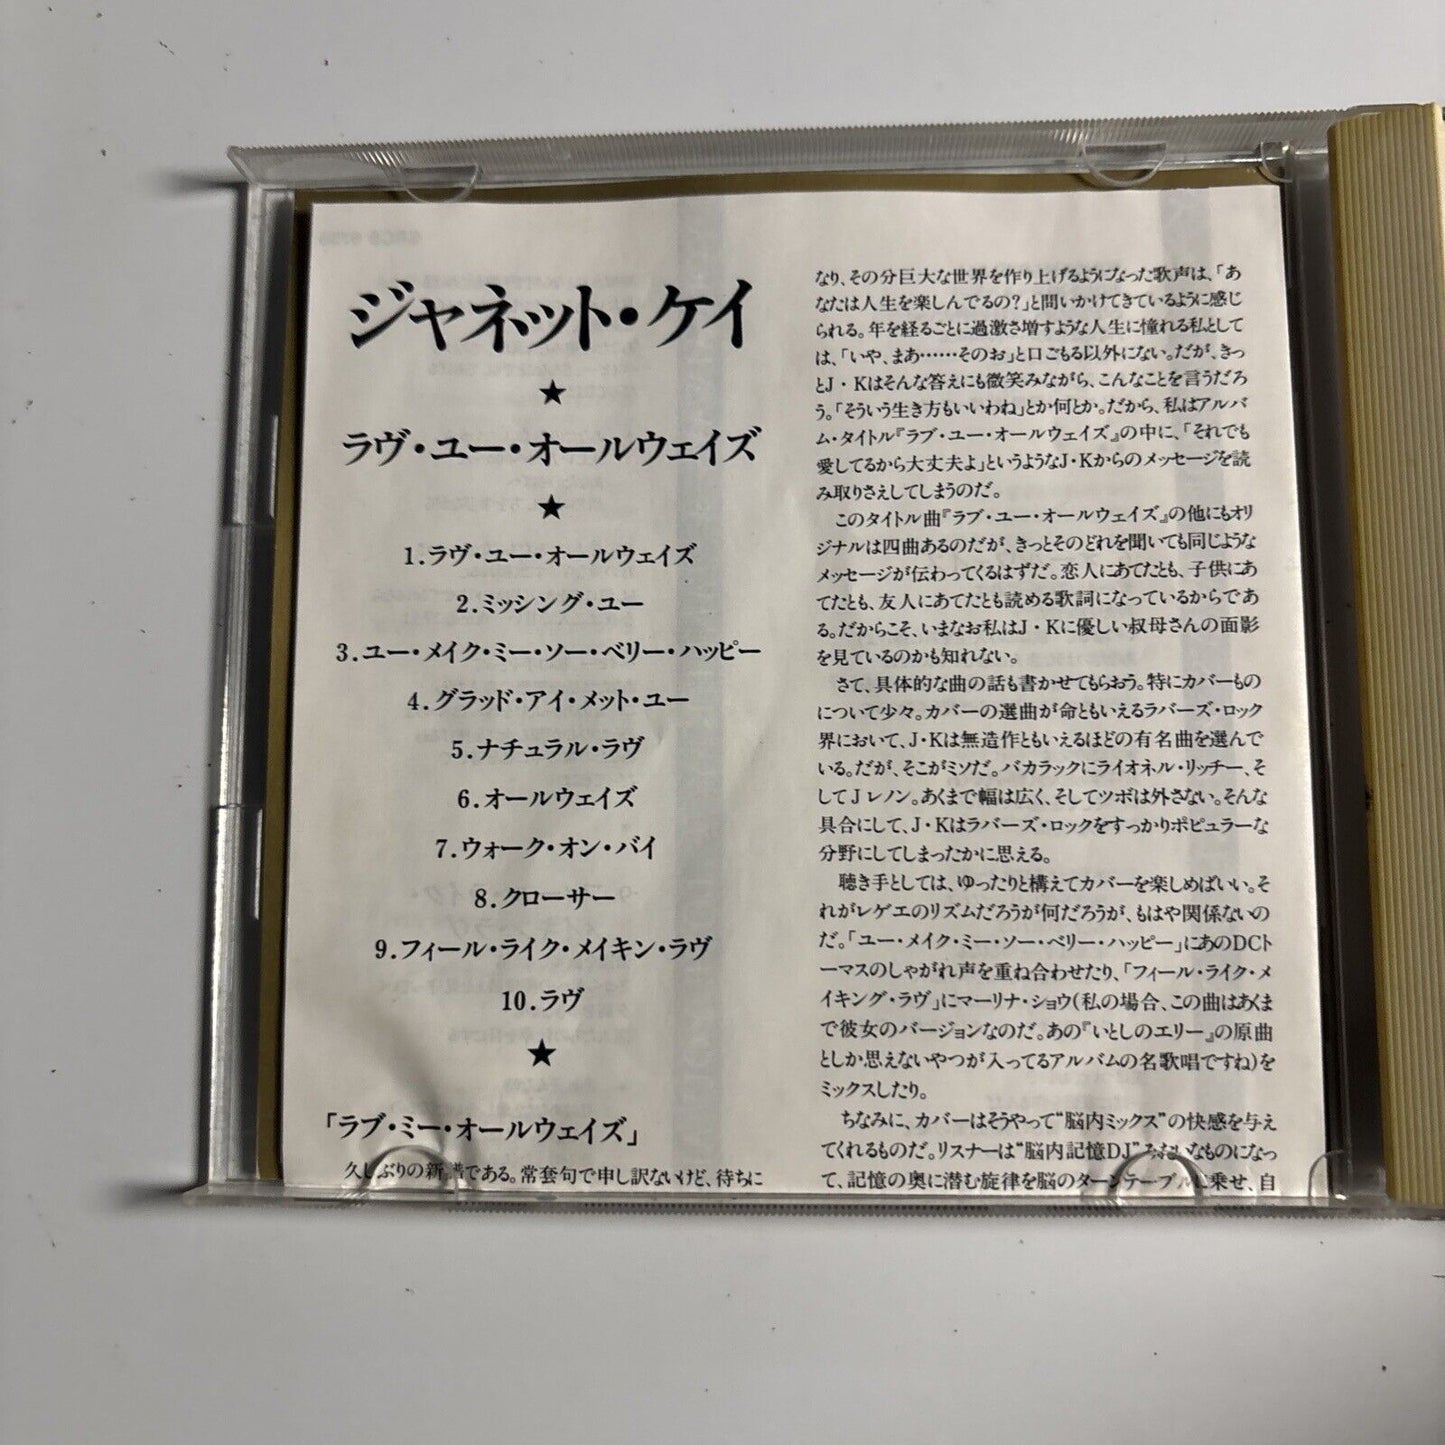 ジャネット・ケイ
★
ラヴ・ユー・オールウェイズ
★
1.ラヴ・ユー・オールウェイズ
2.ミッシング・ユー
3.ユー・メイク・ミー・ソー・ベリー・ハッピー
4.グラッド・アイ・メット・ユー
5.ナチュラル・ラヴ
6.オールウェイズ
7.ウォーク・オン・バイ
8.クローサー
9.フィール・ライク・メイキン・ラヴ
10.ラヴ
★
「ラブ・ミー・オールウェイズ」
久しぶりの新譜である。常套句で申し訳ないけど、待ちに
なり、その分巨大な世界を作り上げるようになった歌声は、「あ
なたは人生を楽しんでるの?」と問いかけてきているように感じ
られる。年を経るごとに過激さ増すような人生に憧れる私として
は、「いや、まあ……そのお」と口ごもる以外にない。だが、きっ
とJ・Kはそんな答えにも微笑みながら、こんなことを言うだろ
う。「そういう生き方もいいわね」とか何とか。だから、私はアルバ
ム・タイトル『ラブ・ユー・オールウェイズ』の中に、「それでも
愛してるから大丈夫よ」というようなJ・Kからのメッセージを読
み取りさえしてしまうのだ。
このタイトル曲『ラブ・ユー・オールウェイズ』の他にもオリ
ジナルは四曲あるのだが、きっとそのどれを聞いても同じような
メッセージが伝わってくるはずだ。恋人にあてたとも、子供にあ
てたとも、友人にあてたとも読める歌詞になっているからであ
る。だからこそ、いまなお私はJ・Kに優しい叔母さんの面影
を見ているのかも知れない。
さて、具体的な曲の話も書かせてもらおう。特にカバーもの
について少々。カバーの選曲が命ともいえるラバーズ・ロック
界において、J・Kは無造作ともいえるほどの有名曲を選んで
いる。だが、そこがミソだ。バカラックにライオネル・リッチー、そ
してJレノン。あくまで幅は広く、そしてツボは外さない。そんな
具合にして、J・Kはラバーズ・ロックをすっかりポピュラーな
分野にしてしまったかに思える。
聴き手としては、ゆったりと構えてカバーを楽しめばいい。そ
れがレゲエのリズムだろうが何だろうが、もはや関係ないの
だ。「ユー・メイク・ミー・ソー・ベリー・ハッピー」にあのDCト
ーマスのしゃがれ声を重ね合わせたり、「フィール・ライク・メ
イキング・ラヴ」にマーリナ・ショウ(私の場合、この曲はあくま
で彼女のバージョンなのだ。あの『いとしのエリー』の原曲
としか思えないやつが入ってるアルバムの名歌唱ですね)を
ミックスしたり。
ちなみに、カバーはそうやって“脳内ミックス”の快感を与え
てくれるものだ。リスナーは“脳内記憶DJ”みたいなものになっ
て、記憶の奥に潜む旋律を脳のターンテーブルに乗せ、自